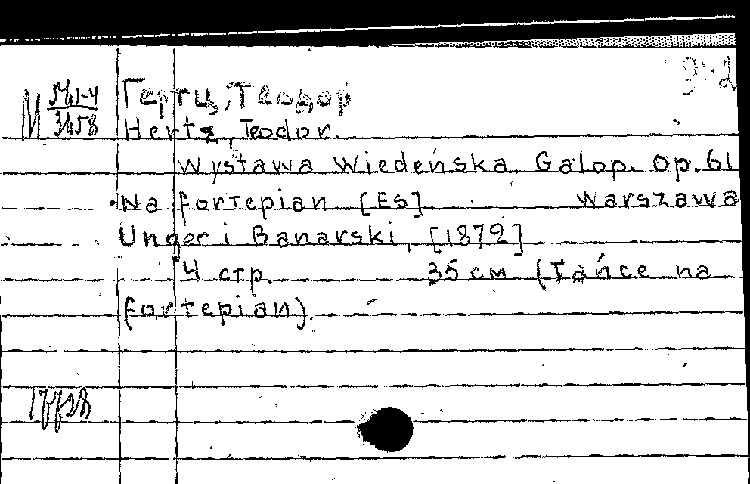 Гертц, Теодор
Hertz, Teodor.
Wystawa Wiedeńska. Galop. Op. 61
Na fortepian [Es] Warszawa
Unger i Banarski, [1872]
4 стр. 35 см (Tańce na
fortepian).